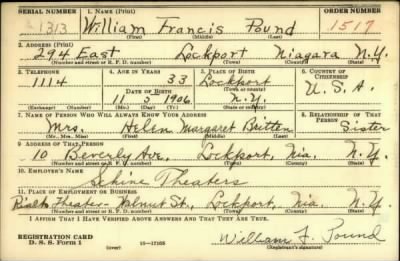 SERIAL NUMBER 1. NAME (Print) ORDER NUMBER
1313 William Francis Pound 1517
(First) (Middle) (Last)
2. ADDRESS (Print)
294 East Lockport Niagara N.Y.
(Number and street or R. F. D. number) (Town) (County) (State)
3. TELEPHONE 4. AGE IN YEARS 5. PLACE OF BIRTH 6. COUNTRY OF CITIZENSHIP
1114 33 Lockport
DATE OF BIRTH (Town or county) U.S.A.
11 5 1906 N.Y.
(Exchange) (Number) (Mo.) (Day) (Yr.) (State or country)
7. NAME OF PERSON WHO WILL ALWAYS KNOW YOUR ADDRESS 8. RELATIONSHIP OF THAT PERSON
Mrs. Helen Margaret Britten Sister
(Mr., Mrs., Miss) (First) (Middle) (Last)
9. ADDRESS OF THAT PERSON
10 Beverly Ave. Lockport, Nia. N.Y.
(Number and street or R. F. D. number) (Town) (County) (State)
10. EMPLOYER'S NAME
Schine Theaters
11. PLACE OF EMPLOYMENT OR BUSINESS
Rialto Theater - Walnut St., Lockport, Nia. N.Y.
(Number and street or R. F. D. number) (Town) (County) (State)
I AFFIRM THAT I HAVE VERIFIED ABOVE ANSWERS AND THAT THEY ARE TRUE.
William F. Pound
REGISTRATION CARD
D. S. S. Form 1 (over) 16-17105 (Registrant's signature)